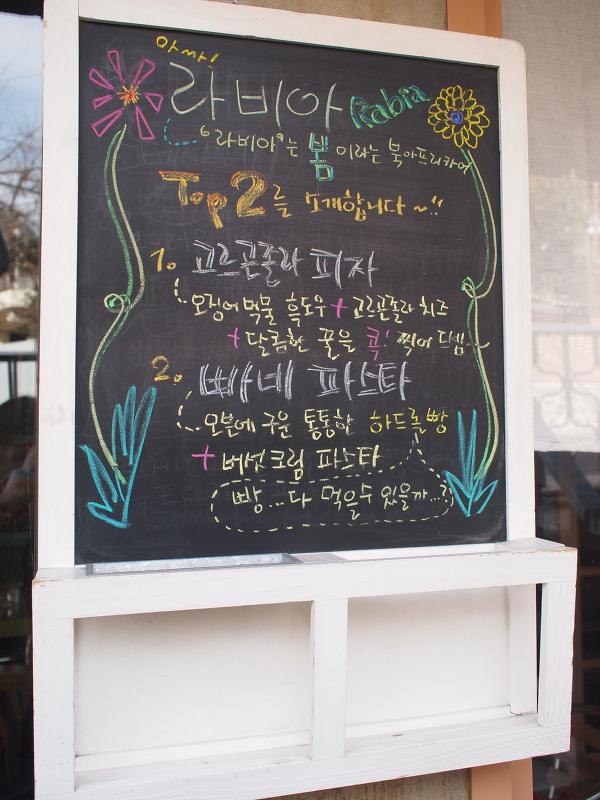 아싸!
라비아 Rabia
"라비아"는 봄 이라는 북아프리카어
Top 2를 소개합니다~!!
1. 고르곤졸라 피자
오징어먹물 흑도우 + 고르곤졸라 치즈
+ 달콤한 꿀을 콕! 찍어 드셈~
2. 빠네 파스타
오븐에 구운 통통한 하드롤빵
+ 버섯크림 파스타
빵...다 먹을수 있을까...?